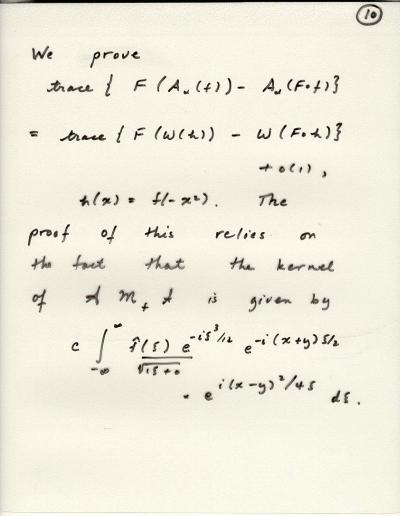 10
We prove
trace { F (A_α(f)) - A_α(F∘f)}
= trace { F (W(h)) - W (F∘h)}
+ o(1),
h(x) = f(-x²). The
proof of this relies on
the fact that the kernel
of A M_+ A is given by
c ∫_{-∞}^{∞} f̂(ξ) / √(iξ+0) e^{-iξ³/12} e^{-i(x+y)ξ/2}
· e^{i(x-y)²/4ξ} dξ.